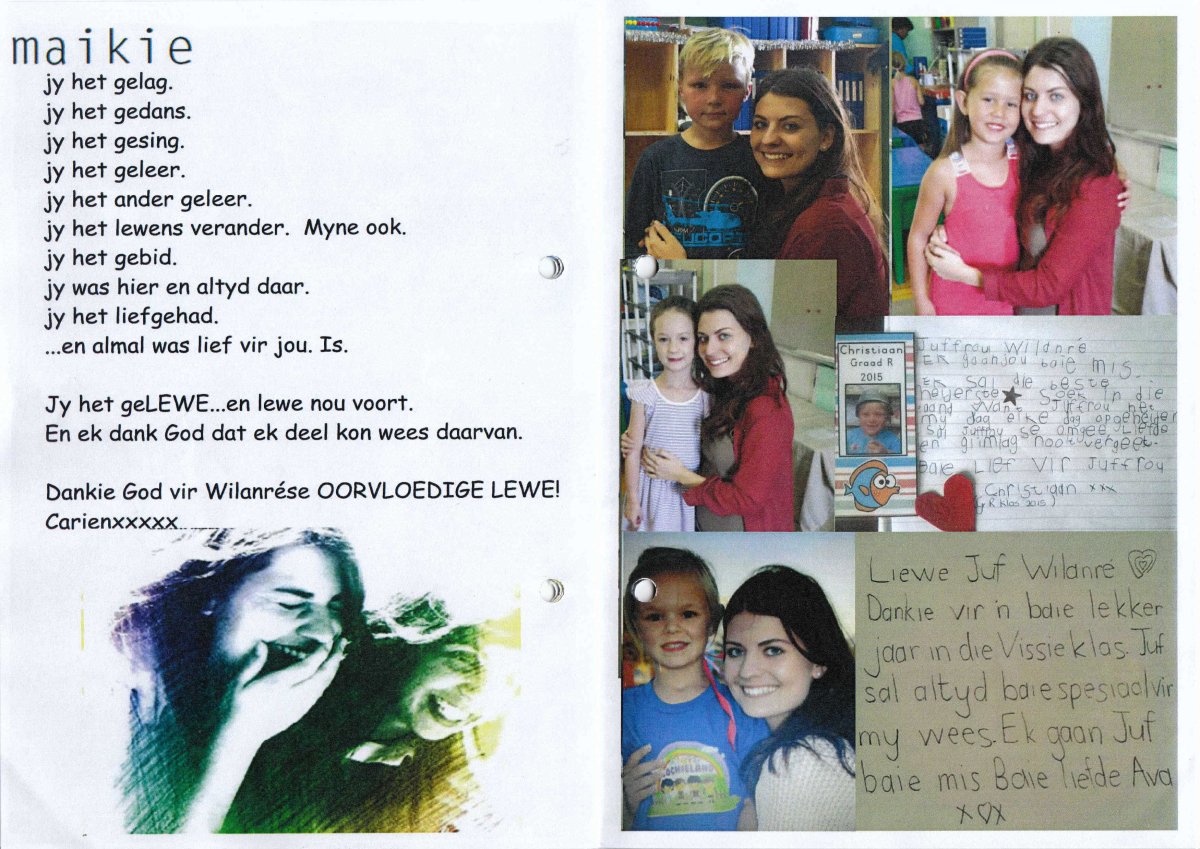 maikie
jy het gelag.
jy het gedans.
jy het gesing.
jy het geleer.
jy het ander geleer.
jy het lewens verander.  Myne ook.
jy het gebid.
jy was hier en altyd daar.
jy het liefgehad.
...en almal was lief vir jou. Is.
Jy het geLEWE...en lewe nou voort.
En ek dank God dat ek deel kon wees daarvan.
Dankie God vir Wilanrése OORVLOEDIGE LEWE!
Carienxxxxx
Christiaan
Graad R
2015
Juffrou Wilanré
Ek gaan jou baie mis.
Ek sal die beste
helderste ★ soek in die
aand want Juffrou het
my dag elke dag opgehelder
Sal Juffrou se omgee, liefde
en glimlag nooit vergeet.
Baie Lief vir Juffrou
Christiaan xxx
(Gr R klas 2015)
Liewe Juf Wilanré
Dankie vir 'n baie lekker
jaar in die Vissieklas. Juf
sal altyd baie spesiaal vir
my wees. Ek gaan Juf
baie mis Baie liefde Ava
x♡x